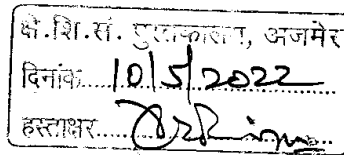 क्षे.शि.सं. पुस्तकालय, अजमेर
दिनांक 10/5/2022
हस्ताक्षर